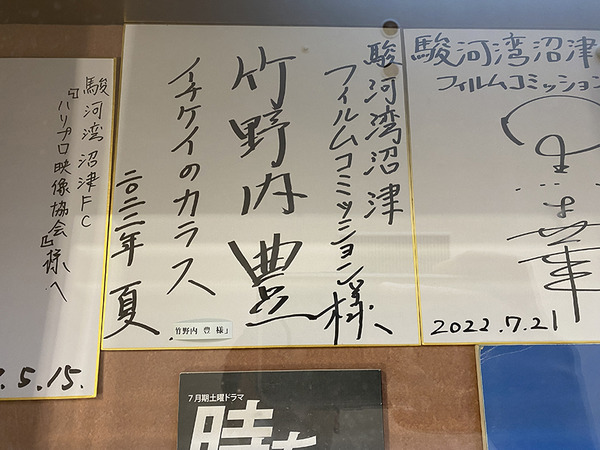 駿河湾沼津
フィルムコミッション
2022.7.21
駿河湾沼津
フィルムコミッション様、
竹野内豊
イチケイのカラス
二〇二二年 夏
竹野内 豊 様
駿河湾沼津FC
『ハリプロ映像協会』様へ
.5.15.
7月期土曜ドラマ